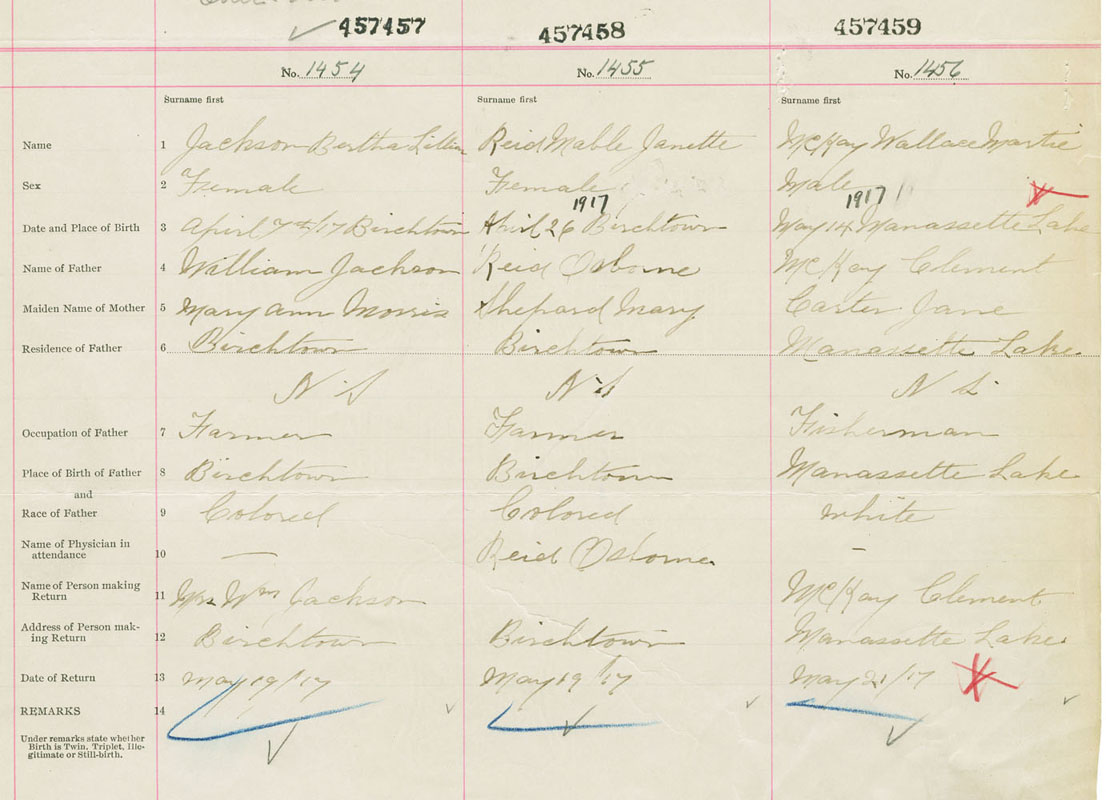 457457 457458 457459
No. 1454 No. 1455 No. 1456
Surname first Surname first Surname first
Name 1 Jackson Bertha Lillian Reid Mable Janette McKay Wallace Martie
Sex 2 Female Female Male
1917 1917
Date and Place of Birth 3 April 7th/17 Birchtown April 26 Birchtown May 14 Manassette Lake
Name of Father 4 William Jackson Reid Osborne McKay Clement
Maiden Name of Mother 5 Mary Ann Morris Shepard Mary Carter Jane
Residence of Father 6 Birchtown Birchtown Manassette Lake
N S N S N S
Occupation of Father 7 Farmer Farmer Fisherman
Place of Birth of Father 8 Birchtown Birchtown Manassette Lake
and
Race of Father 9 Colored Colored White
Name of Physician in
attendance 10 — Reid Osborne –
Name of Person making
Return 11 Mrs Wm Jackson McKay Clement
Address of Person mak-
ing Return 12 Birchtown Birchtown Manassette Lake
Date of Return 13 May 19/17 May 19/17 May 21/17
REMARKS 14
Under remarks state whether
Birth is Twin, Triplet, Ille-
gitimate or Still-birth.